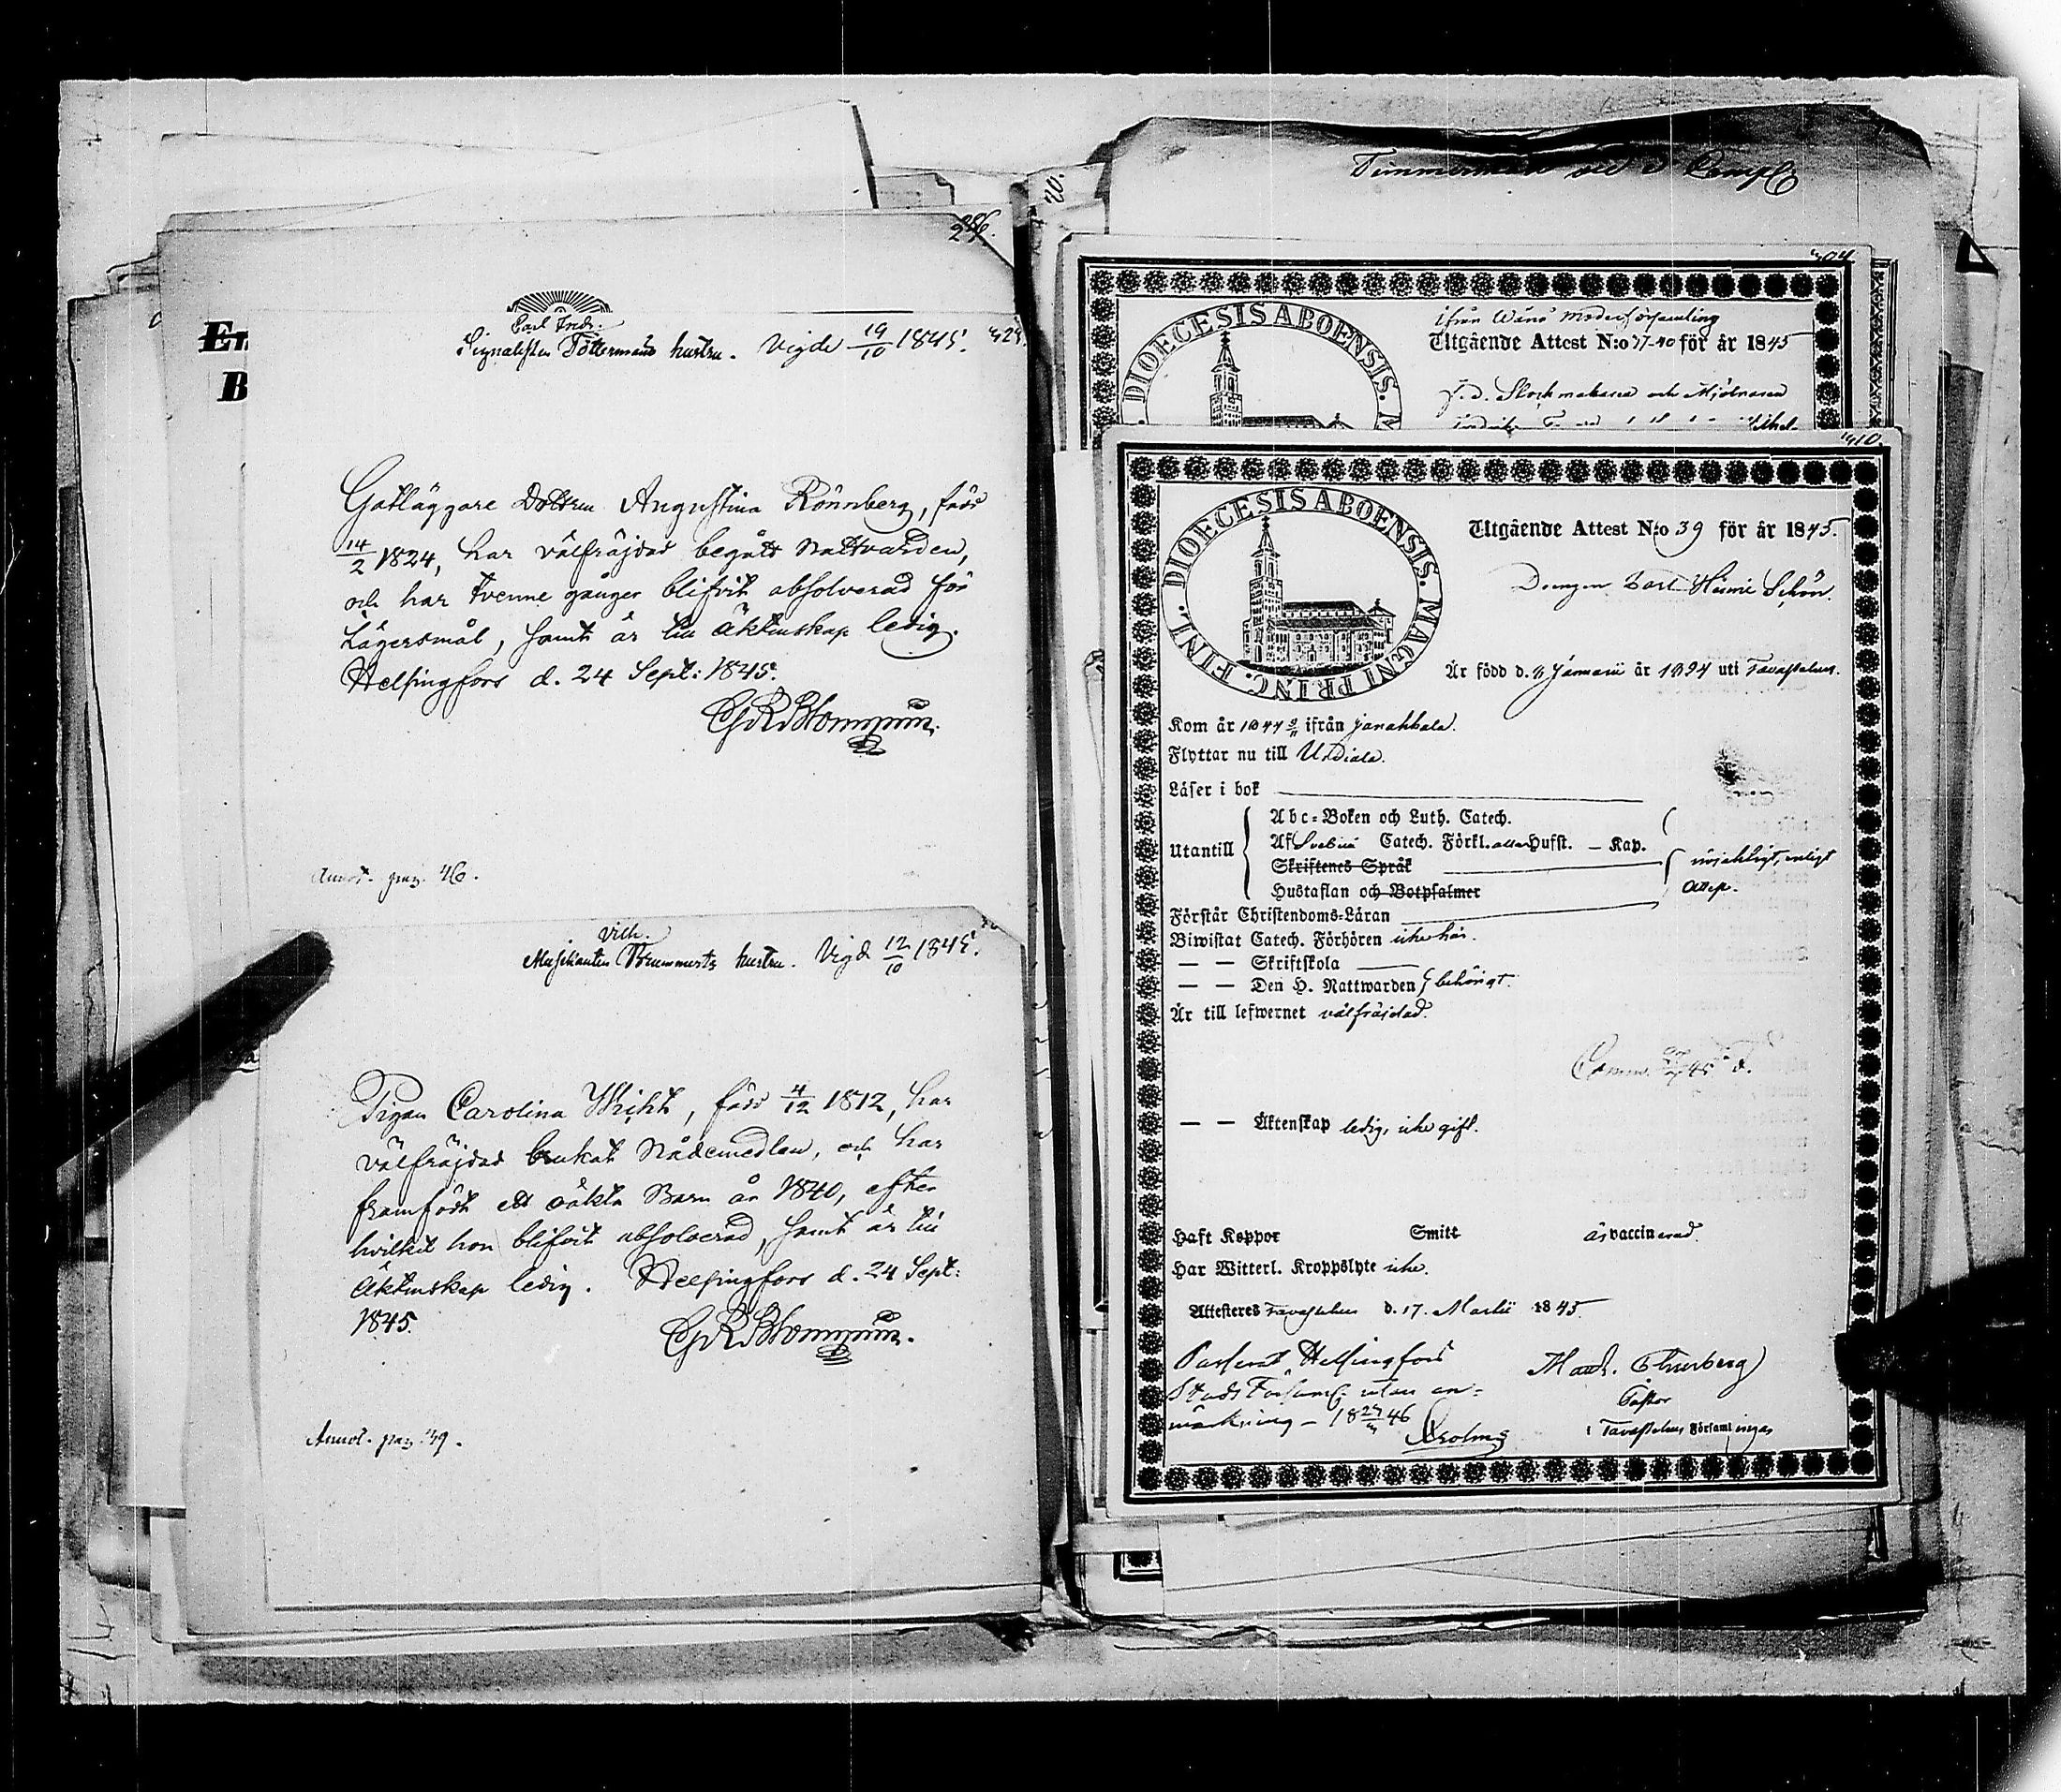 Carl Fredr:
Signalisten Töttermans hustru. Vigde 19/10 1845. 425.
Gatläggare Dottren Augustina Rönnberg, född
14/2 1824, har välfräjdad begått Nattvarden,
och har tvenne gånger blifvit absolverad för
Lägersmål, samt är till Äktenskap ledig.
Helsingfors d. 24 Sept: 1845.
Annot. pag. 46.
Vilh.
Musikanten Brummerts hustru. Vigd 12/10 1845.
Pigan Carolina Wicht, född 4/12 1812, har
välfräjdad brukat Nådemedlen, och har
framfödt ett oäkta Barn år 1840, efter
hvilket hon blifvit absolverad, samt är till
Äktenskap ledig. Helsingfors d. 24 Sept:
1845.
Annot. pag. 39.
En
B
Timmerman
404.
DIOECESIS ABOENSIS. M
ifrån Wånå Moderförsamling
Utgående Attest N:o 37-40 för år 1845
f.d. Stockmakaren och Mjölnaren
410.
DIOECESIS ABOENSIS. MAGNI PRINC. FINL.
Utgående Attest N:o 39 för år 1845.
Drengen Carl Schön.
Är född d. Januarii år 1824 uti Tavastehus.
Kom år 1844 ifrån Janakkala.
Flyttar nu till Urdiala.
Läser i bok
Utantill
Abc-Boken och Luth. Catech.
Af Svebilii Catech. Förkl. Hufst. — Kap.
Skriftenes Språk
enligt
Hustaflan och Botpsalmer
Attest.
Förstår Christendoms-Läran
Biwistat Catech. Förhören icke här.
— — Skriftskola
— — Den H. Nattwarden behörigt.
Är till lefwernet välfräjdad.
— — Äktenskap ledig, icke gift.
Haft Koppor Smitt är vaccinerad.
Har Witterl. Kroppslyte icke.
Attesteres Tavastehus d. 17. Martii 1845.
Passerat Helsingfors
Stads Församl. utan an-
märkning – 18 46
Pastor
i Tavastehus Församlingar